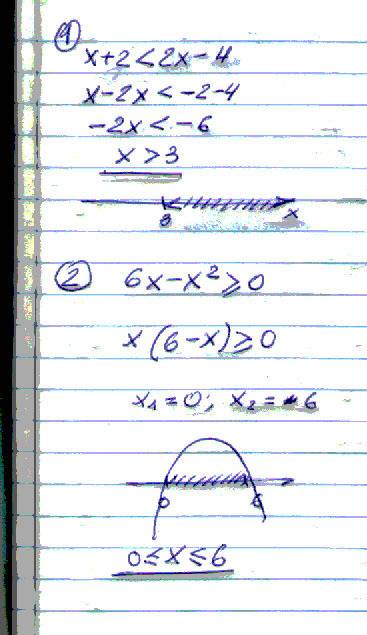 1
x+2<2x-4
x-2x<-2-4
-2x<-6
x>3
3 x
2 6x-x²⩾0
x(6-x)⩾0
x₁=0; x₂=-6
0 6
0≤x≤6